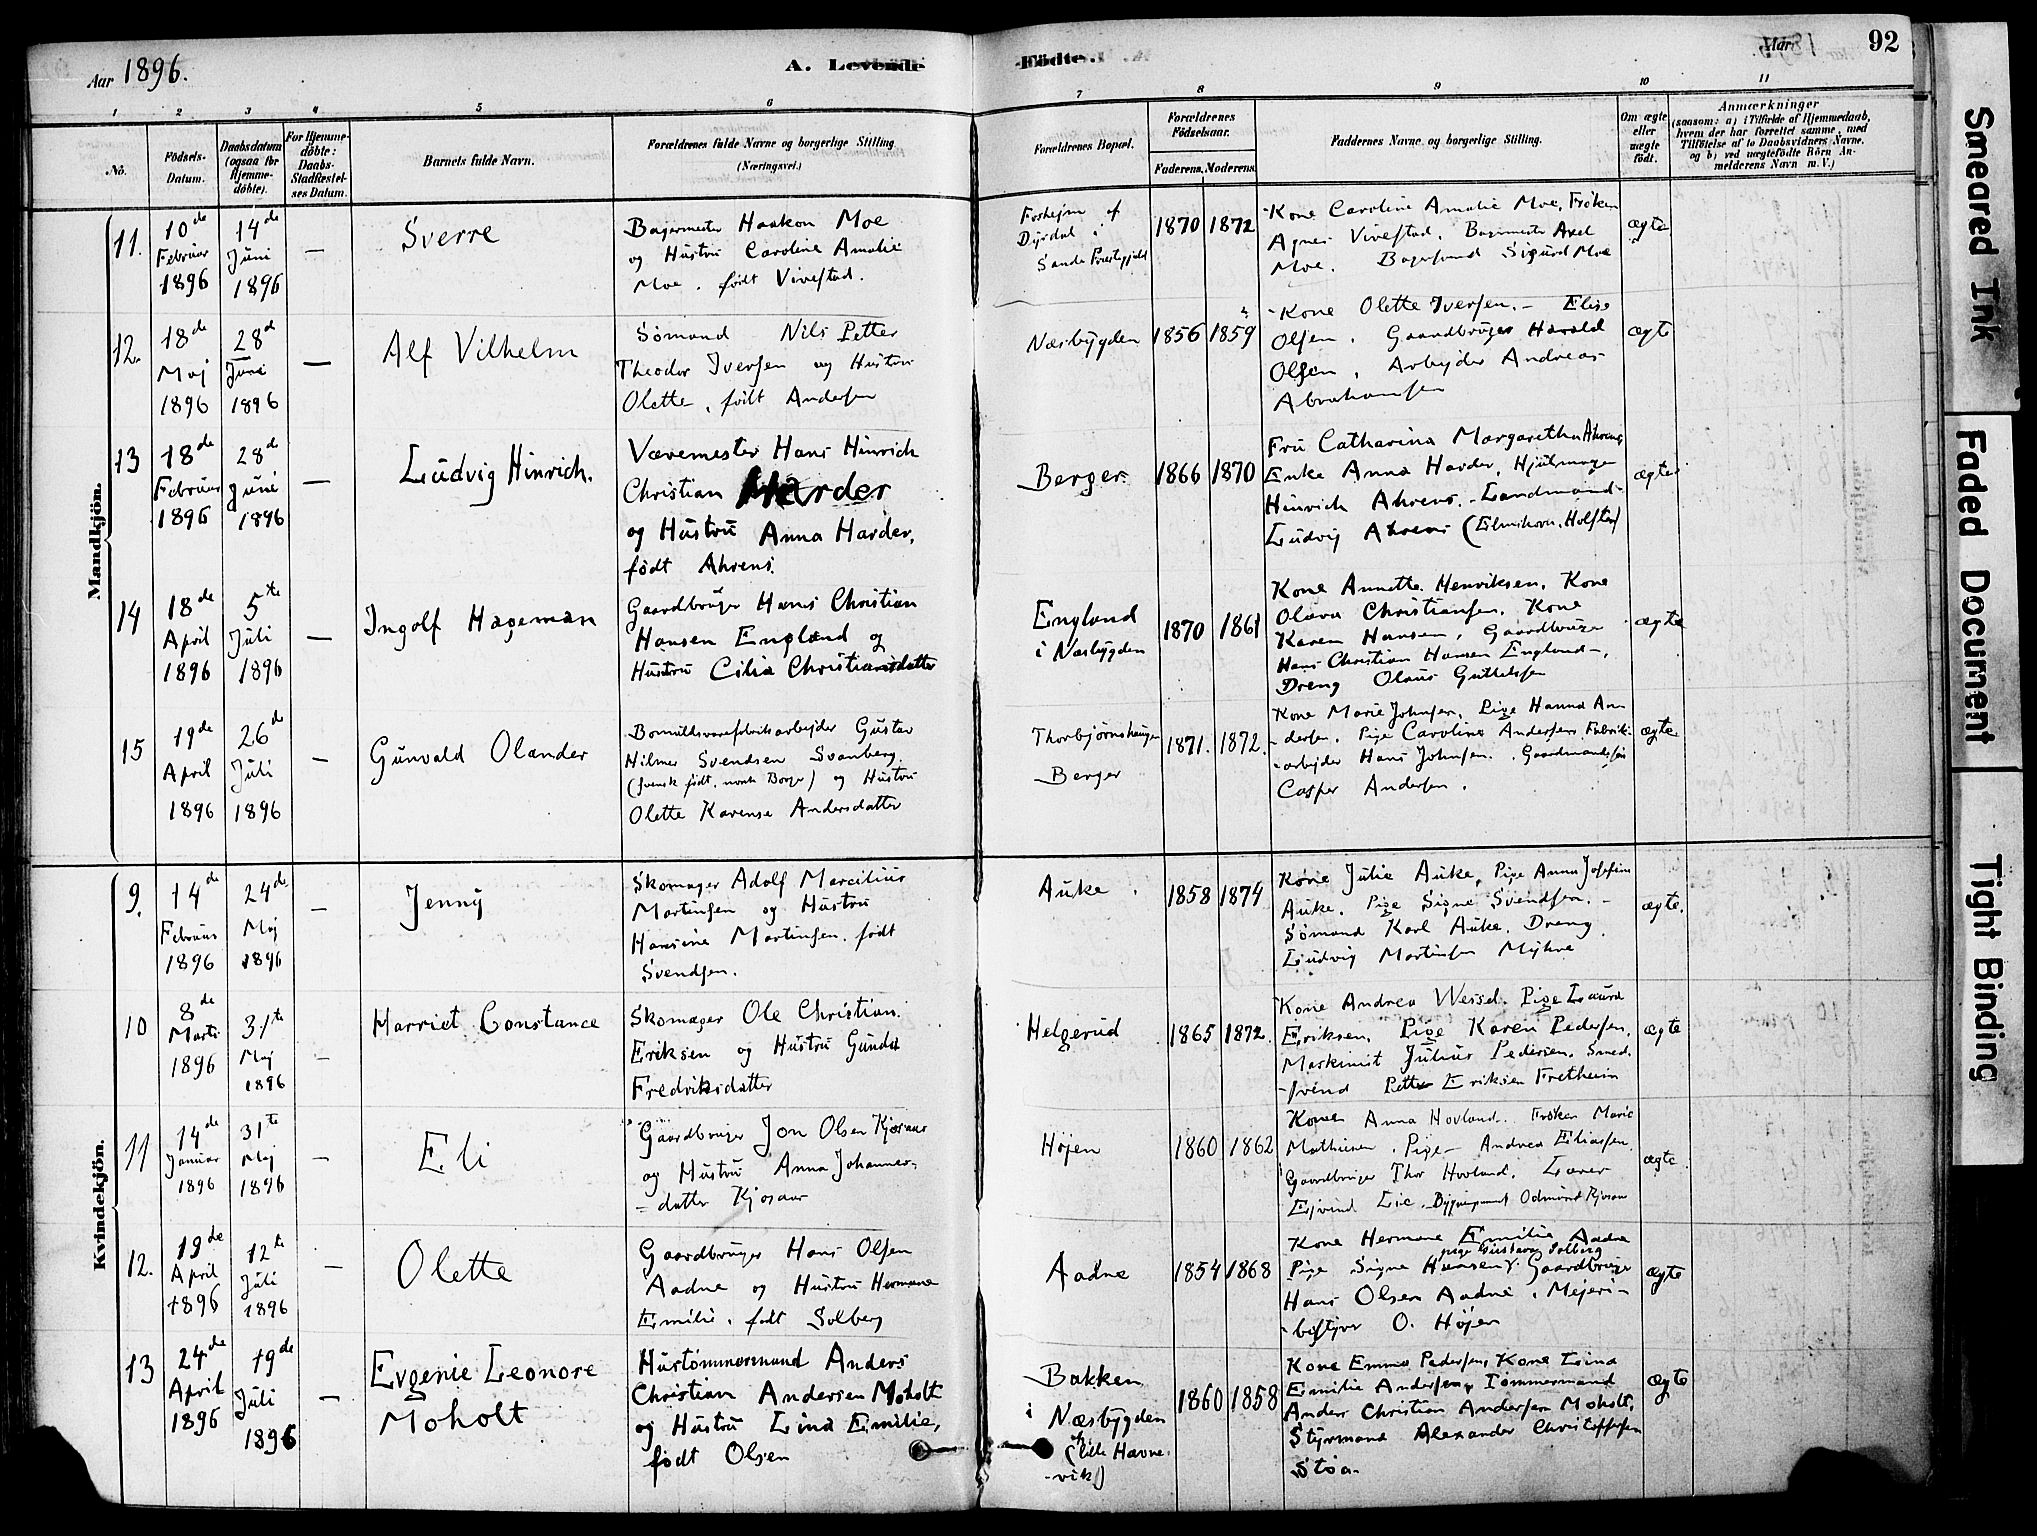 Aar 1896.
A. Levende
Födte.
Aar
92
1
2
3
4
5
6
7
8
9
10
11
No.
Födsels-Datum.
Daabsdatum (ogsaa for Hjemmedöbte).
For Hjemmedöbte: Daabs-Stadfæstelses Datum.
Barnets fulde Navn.
Forældrenes fulde Navne og borgerlige Stilling (Næringsvei.)
Forældrenes Bopæl.
Forældrenes Födselsaar.
Faderens. Moderens.
Faddernes Navne og borgerlige Stilling.
Om ægte eller uægte födt.
Anmærkninger
(saasom: a) i Tilfælde af Hjemmedaab, hvem der har forrettet samme, med Tilföielse af to Daabsvidners Navne, og b) ved uægtefödte Börn Anmelderens Navn m. V.)
Mandkjön.
11.
10de Februar 1896
14de Juni 1896
—
Sverre
Bagermester Haakon Moe
og Hustru Caroline Amalie
Moe, født Vivestad.
Dyrdal i
Sande Præstegjeld
1870
1872
Kone Caroline Amalie Moe, Frøken
Agnes Vivestad. Bagermester Axel
Moe. Bagersvend Sigurd Moe
ægte
12.
18de Maj 1896
28d Juni 1896
—
Alf Vilhelm
Sømand Nils Petter
Theodor Iversen og Hustru
Olette, født Andersen
Næsbygden
1856
1859
Kone Olette Iversen. — Elise
Olsen. Gaardbruger Harald
Olsen, Arbejder Andreas
Abrahamsen
ægte
13
18de Februar 1896
28de Juni 1896
—
Ludvig Hinrich.
Væremester Hans Hinrich
Christian Harder
og Hustru Anna Harder,
født Ahrens.
Berger
1866
1870
Fru Catharina Margaretha Ahrens
Enke Anna Harder, Hjulmager
Hinrich Ahrens. Landmand
Ludvig Ahrens (Elmshorn, Holsten)
ægte
14
18de April 1896
5te Juli 1896
—
Ingolf Hageman
Gaardbruger Hans Christian
Hansen England og
Hustru Cilia Christiansdatter
England
i Næsbygden
1870
1861
Kone Annette Henriksen, Kone
Olava Christiansen, Kone
Karen Hansen, Gaardbruger
Hans Christian Hansen England —,
Dreng Olaus Guttelsen
ægte
15
19de April 1896
26de Juli 1896
—
Gunvald Olander
Bomuldsvarefabrikarbejder Gustav
Hilmer Svendsen Svanberg
(svensk født, norsk Borger) og Hustru
Olette Karense Andersdatter
Thorbjørnshaugen
Berger
1871.
1872.
Kone Marie Johnsen, Pige Hanna An-
dersen. Pige Caroline Andersen, Fabrik-
arbejder Hans Johnsen. Gaardmandssøn
Casper Andersen.
ægte
Kvindekjön.
9.
14de Februar 1896
24de Maj 1896
—
Jenny
Skomager Adolf Marcilius
Martinsen og Hustru
Hansine Martinsen, født
Svendsen.
Auke.
1858
1874
Kone Julie Auke, Pige Anna Josefine
Auke. Pige Signe Svendsen. —
Sømand Karl Auke. Dreng
Ludvig Martinsen Myhre
ægte.
10
8de Marts 1896
31te Maj 1896
—
Harriet Constance
Skomager Ole Christian
Eriksen og Hustru Gunda
Fredriksdatter
Helgerud
1865
1872.
Kone Andrea Wessel. Pige Laura
Eriksen. Pige Karen Pedersen,
Maskinist Julius Pedersen. Smed-
svend Petter Eriksen Fretheim
ægte
11
14de Januar 1896
31te Maj 1896
—
Eli
Gaardbruger Jon Olsen Kjosaur
og Hustru Anna Johannes-
datter Kjosaur
Højen
1860
1862
Kone Anna Hovland. Frøken Marie
Mathiesen. Pige Andrea Eliassen.
Gaardbruger Thor Hovland. Lærer
Ejvind Lie. Odmund Kjosaur
ægte
12.
19de April 1896
12te Juli 1896
—
Olette
Gaardbruger Hans Olsen
Aadne og Hustru Hermane
Emilie, født Solberg
Aadne
1854
1868
Kone Hermane Emilie Aadne
pige Gustava Solberg
Pige Signe Hansen. Gaardbruger
Hans Olsen Aadne. Mejeri-
bestyrer O. Højen
ægte
13
24de April 1896
19de Juli 1896
—
Evgenie Leonore
Moholt
Hustømmermand Anders
Christian Andersen Moholt
og Hustru Lina Emilie,
født Olsen
Bakken
i Næsbygden
(lille Havne-
vik)
1860
1858
Kone Emma Pedersen, Kone Lina
Emilie Andersen, Tømmermand
Anders Christian Andersen Moholt,
Styrmand Alexander Christoffersen
Støa.
ægte
Smeared Ink
Faded Document
Tight Binding